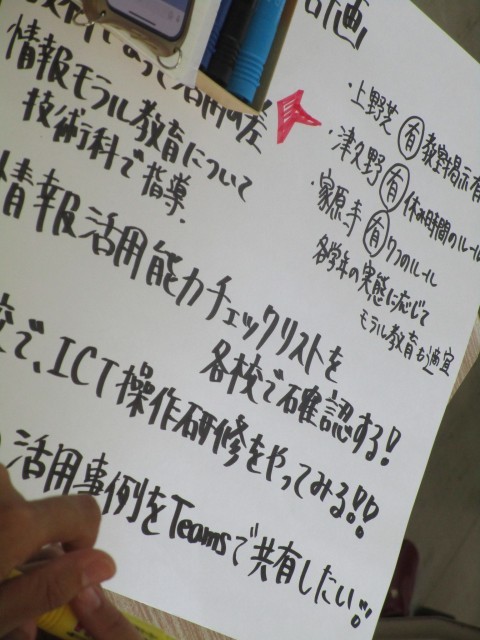 計画
活用の差
情報モラル教育について
技術科で指導.
・上野芝 有 教室掲示有
・津久野 有 休み時間のルール
・家原寺 有 7つのルール
各学年の実態に応じて
モラル教育も適宜
情報活用能力チェックリストを
各校で確認する!
校で、ICT操作研修をやってみる!!
活用事例をTeamsで共有したい!!